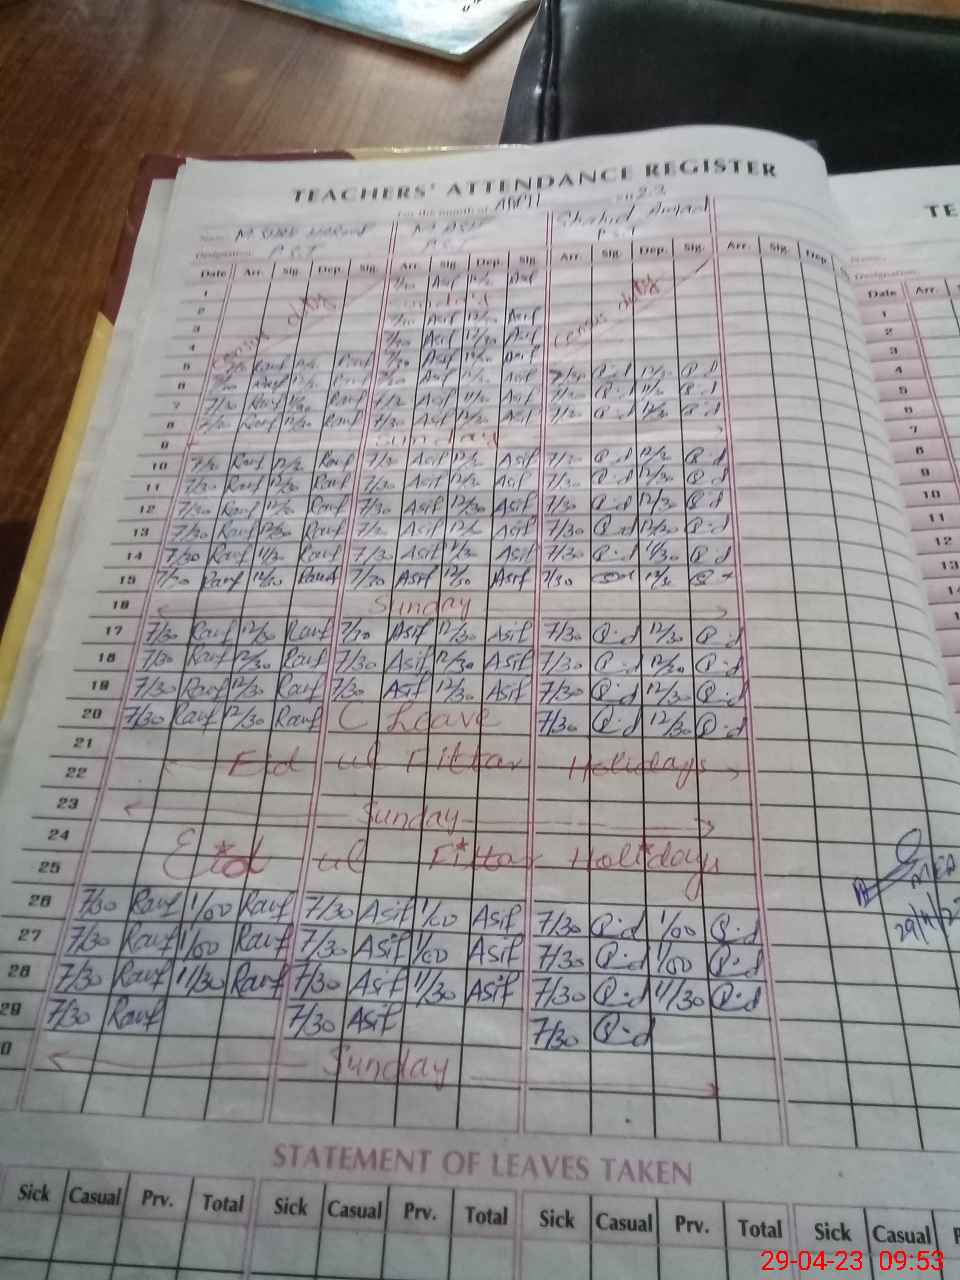 TEACHERS' ATTENDANCE REGISTER
For the month of April
M. Asif Shahid Amjad
Designation P.S.T P.S.T P.S.T
Date Arr. Sig. Dep. Sig. Arr. Sig. Dep. Sig. Arr. Sig. Dep. Sig. Arr. Sig. Dep.
1 Asif Asif
2 Sunday
3 Asif Asif
4 Asif 12/30 Asif
census duty census duty
5 Rauf Rauf Asif Asif
6 Rauf Rauf Asif Asif Q.d Q.d
7 7/30 Rauf Rauf Asif Asif Q.d Q.d
8 Rauf Rauf 7/30 Asif Asif Q.d Q.d
9 Sunday
10 Rauf Rauf Asif Asif Q.d Q.d
11 7/30 Rauf 12/30 Rauf 7/30 Asif 12/30 Asif 7/30 Q.d 12/30 Q.d
12 7/30 Rauf 12/30 Rauf 7/30 Asif 12/30 Asif 7/30 Q.d 12/30 Q.d
13 7/30 Rauf 12/30 Rauf Asif Asif 7/30 Q.d 12/30 Q.d
14 7/30 Rauf 11/30 Rauf 7/30 Asif 11/30 Asif 7/30 Q.d 11/30 Q.d
15 7/30 Rauf 12/30 Rauf 7/30 Asif 12/30 Asif 7/30
16 Sunday
17 7/30 Rauf 12/30 Rauf 7/30 Asif 12/30 Asif 7/30 Q.d 12/30 Q.d
18 7/30 Rauf 12/30 Rauf 7/30 Asif 12/30 Asif 7/30 Q.d 12/30 Q.d
19 7/30 Rauf 12/30 Rauf 7/30 Asif 12/30 Asif 7/30 Q.d 12/30 Q.d
20 7/30 Rauf 12/30 Rauf C Leave 7/30 Q.d 12/30 Q.d
21
22 Eid ul Fittar Holidays
23 Sunday
24
25 Eid ul Fittar Holidays
26 7/30 Rauf 1/00 Rauf 7/30 Asif 1/00 Asif 7/30 Q.d 1/00 Q.d
27 7/30 Rauf 1/00 Rauf 7/30 Asif 1/00 Asif 7/30 Q.d 1/00 Q.d
28 7/30 Rauf 11/30 Rauf 7/30 Asif 11/30 Asif 7/30 Q.d 11/30 Q.d
29 7/30 Rauf 7/30 Asif 7/30 Q.d
0 Sunday
STATEMENT OF LEAVES TAKEN
Sick Casual Prv. Total Sick Casual Prv. Total Sick Casual Prv. Total Sick Casual
TE
Designation
Date Arr.
1
2
3
4
5
6
7
8
9
10
11
12
13
MEA
29/4/2
29-04-23 09:53